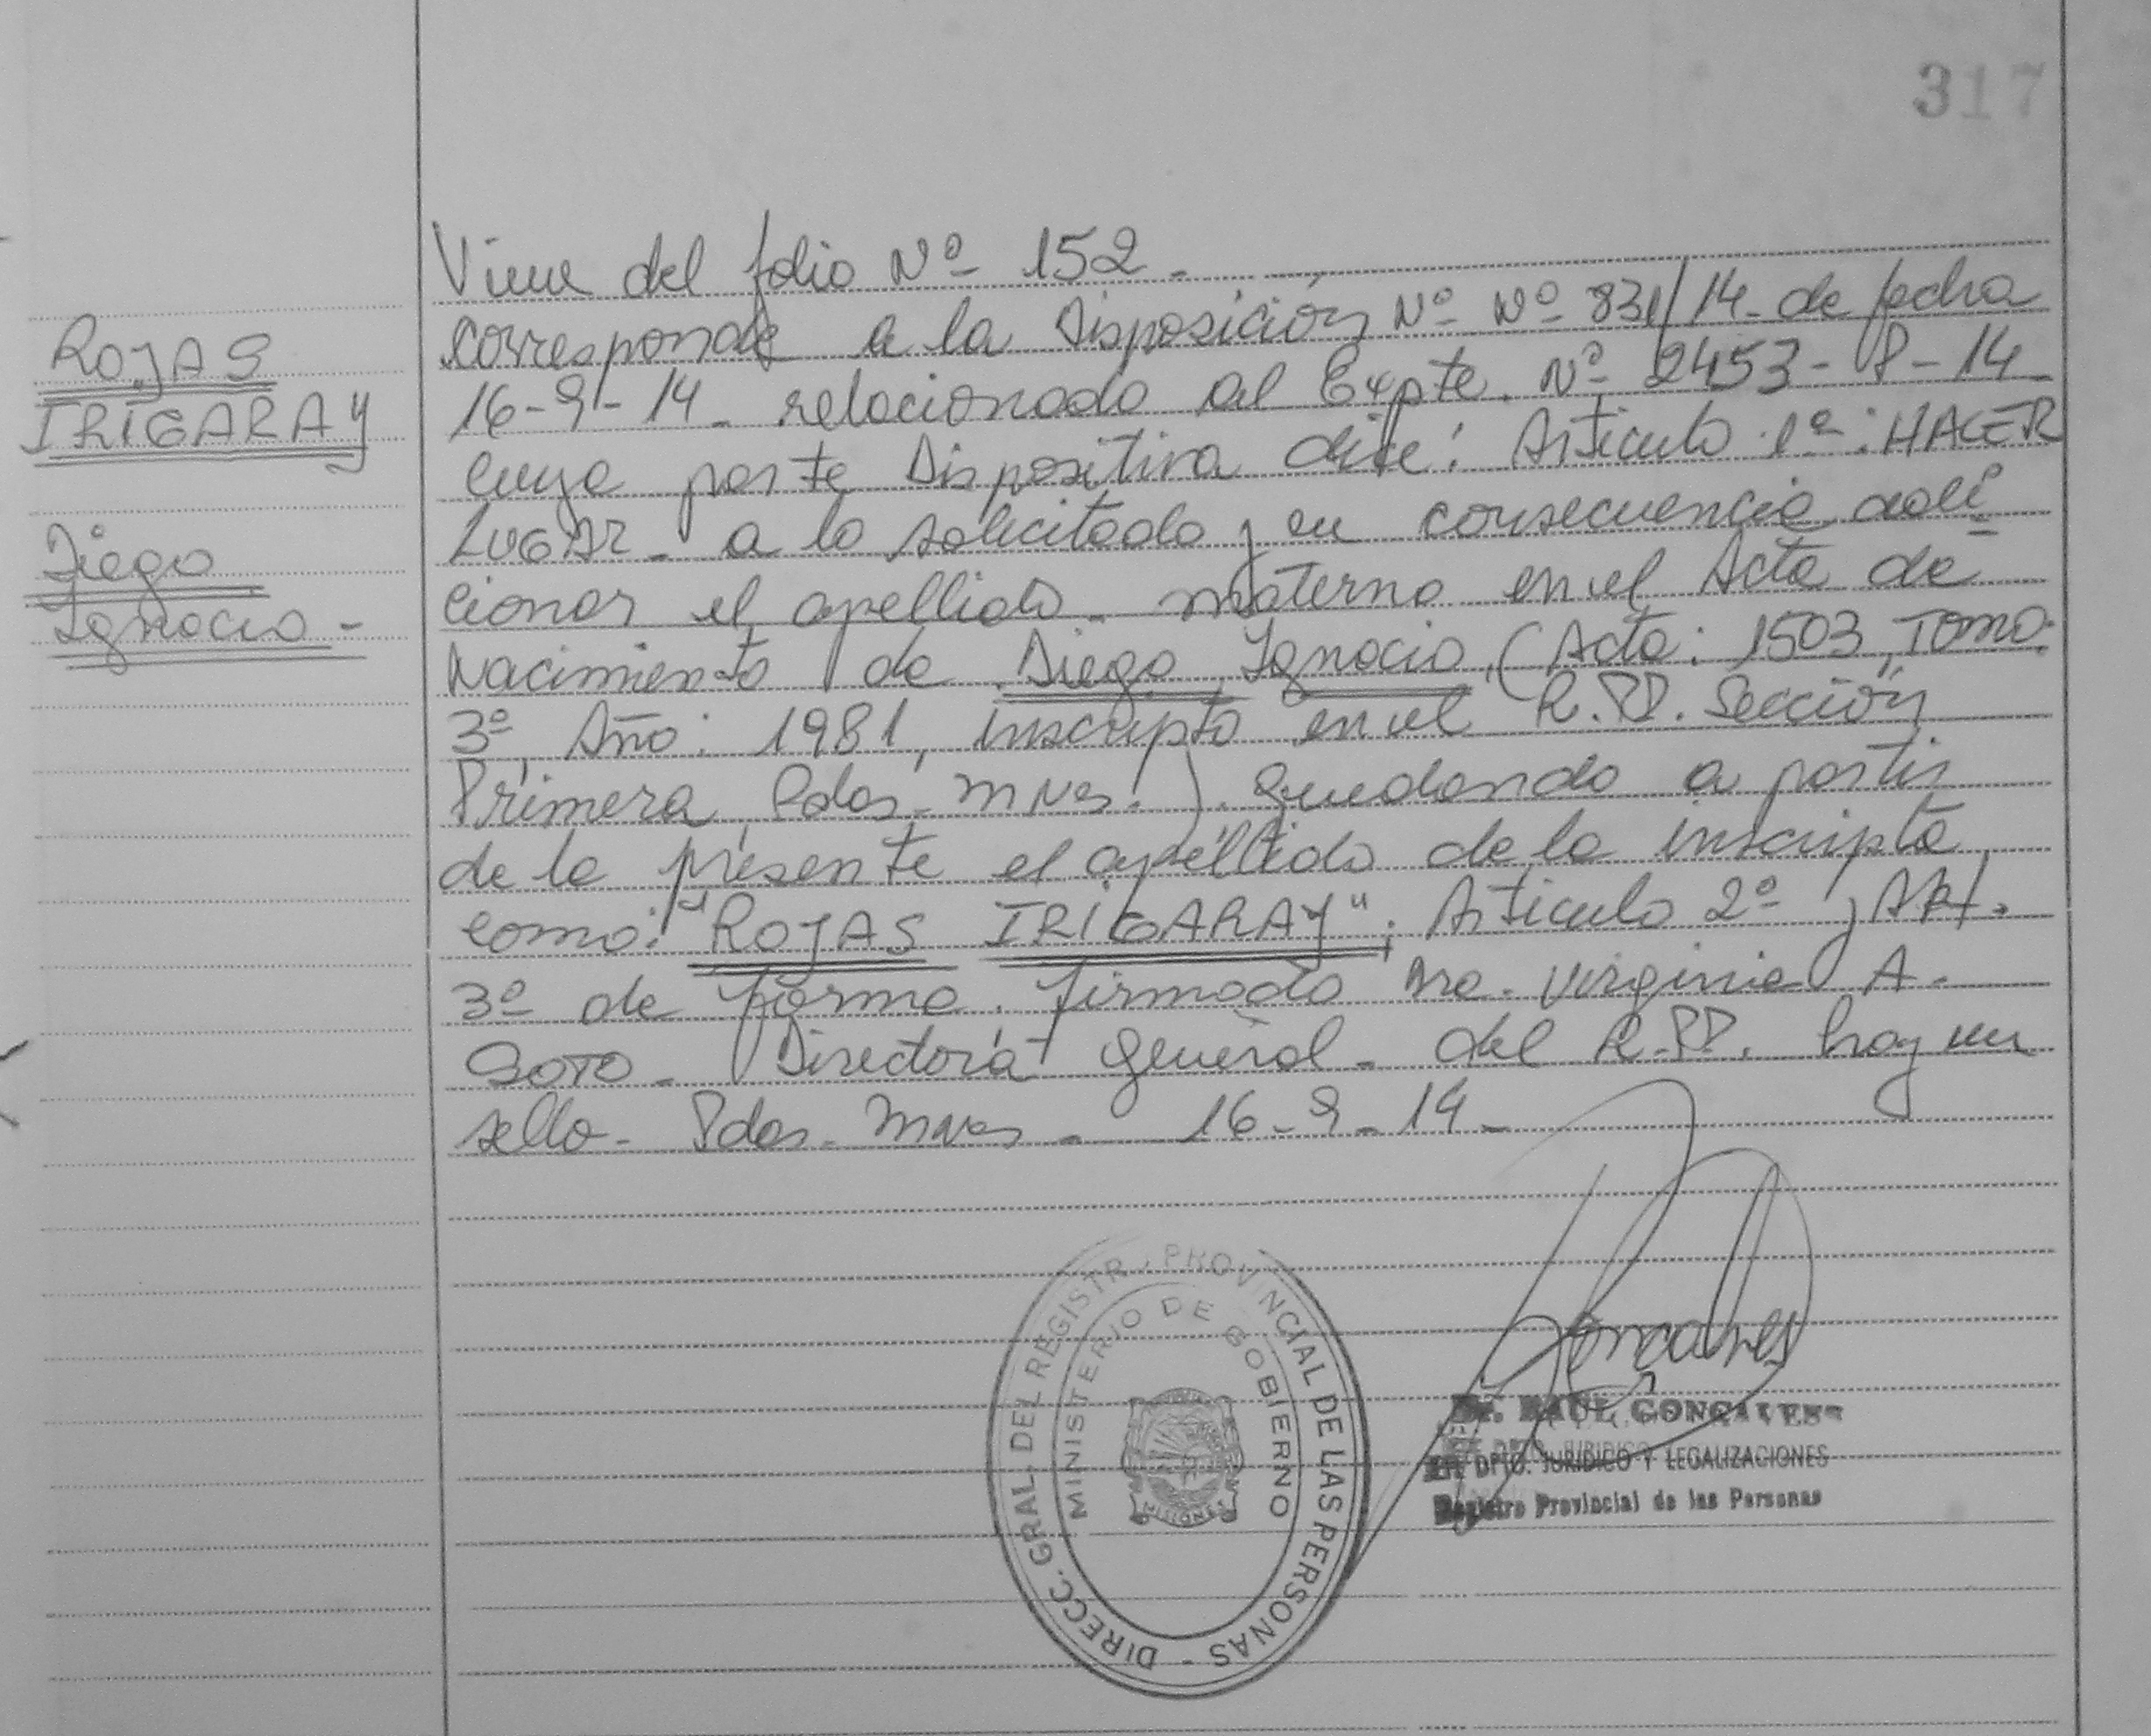 317
ROJAS
IRIGARAY
Diego
Ignacio -
Viene del folio Nº 152 -
Corresponde a la Disposición Nº Nº 831/14- de fecha
16-9-14 - relacionado al Expte. Nº 2453- P-14-
cuya parte Dispositiva dice: Articulo 1º: HACER
LUGAR - a lo solicitado y en consecuencia adi
cionar el apellido - materno en el Acta de
Nacimiento de Diego Ignacio, (Acta: 1503, Tomo:
3º, Año: 1981, inscripto en el R.PP. Sección
Primera, Pdas- Mnes.). Quedando a partir
de la presente el apellido de la inscripta
como: "ROJAS IRIGARAY"; Articulo 2º y Art.
3º de forma. firmado Dra. Virginia A.
SOTO - Directora General - del R.PP. hay un
sello - Pdas - Mnes - 16-9-14-
DIRECC. GRAL. DEL REGISTR. PROVINCIAL DE LAS PERSONAS -
MINISTERIO DE GOBIERNO
MISIONES
Goncalves
Dr. RAUL GONCALVES
DPTO. JURIDICO Y LEGALIZACIONES
Registro Provincial de las Personas